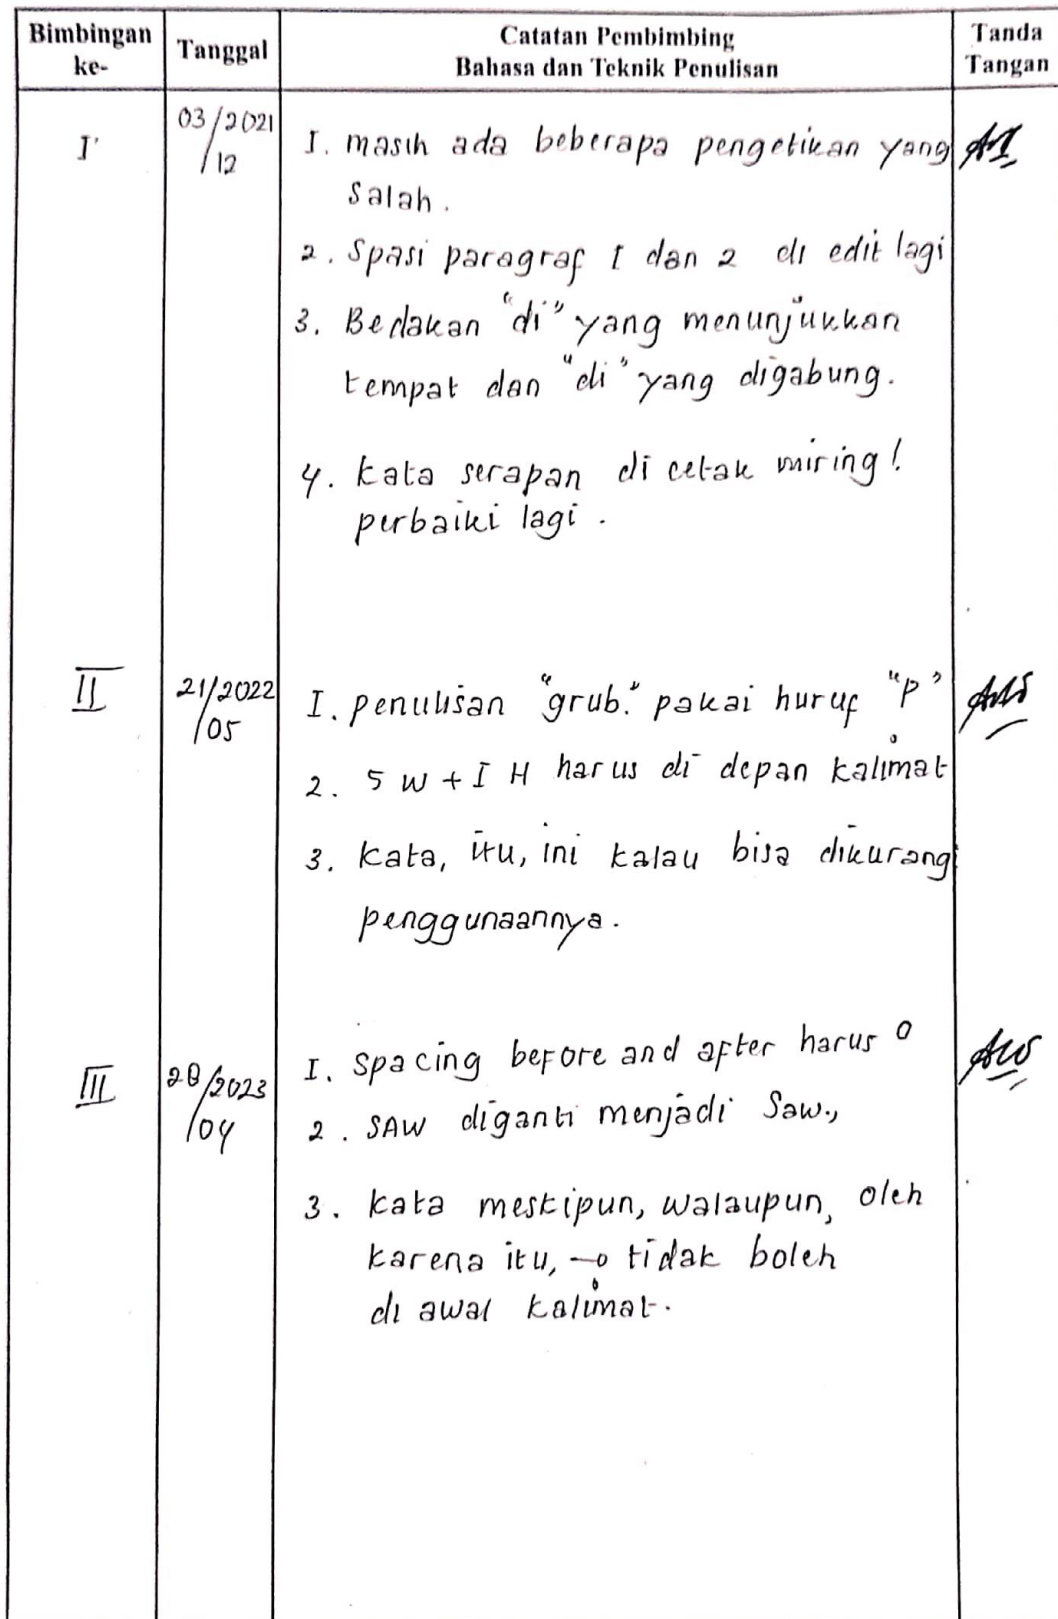 Bimbingan ke-
Tanggal
Catatan Pembimbing
Bahasa dan Teknik Penulisan
Tanda Tangan
I
03/2021
/12
I. masih ada beberapa pengetikan yang
salah.
2. Spasi paragraf I dan 2 di edit lagi
3. Bedakan "di" yang menunjukkan
tempat dan "di" yang digabung.
4. kata serapan di cetak miring!
perbaiki lagi.
II
21/2022
/05
I. penulisan "grub." pakai huruf "p"
2. 5 W + I H harus di depan kalimat
3. kata, itu, ini kalau bisa dikurangi
penggunaannya.
III
28/2023
/04
I. spacing before and after harus 0
2. SAW diganti menjadi Saw.,
3. kata meskipun, walaupun, oleh
karena itu, → tidak boleh
di awal kalimat.